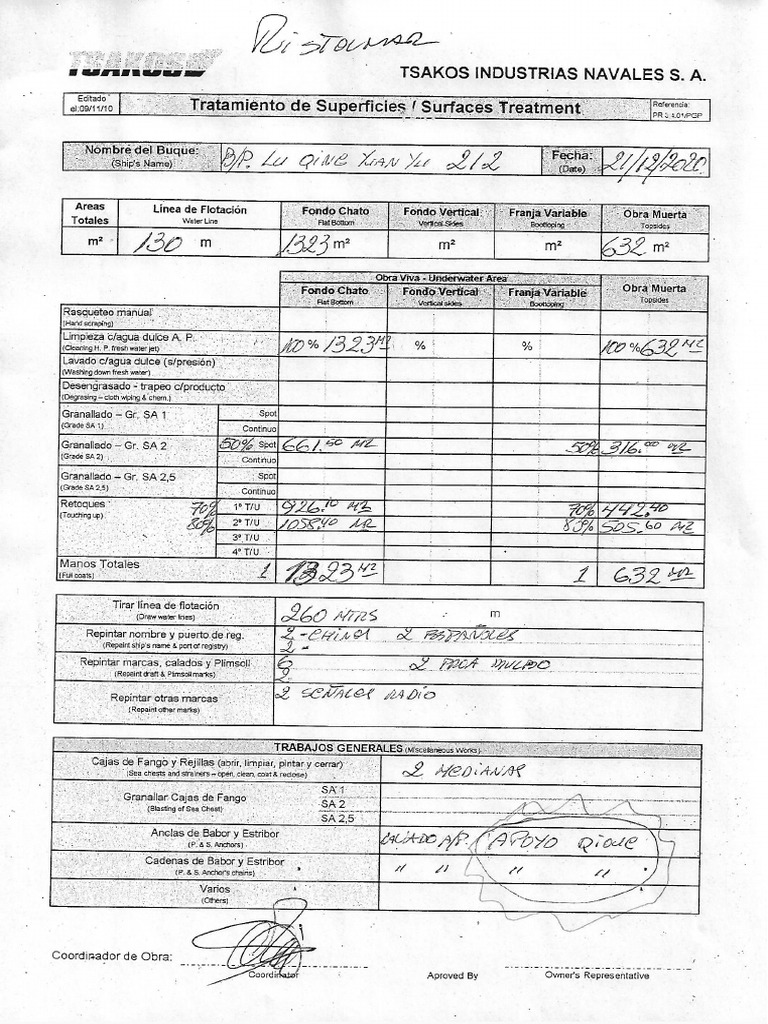 Ristolmar
TSAKOS
TSAKOS INDUSTRIAS NAVALES S. A.
Editado el:09/11/10
Tratamiento de Superficies / Surfaces Treatment
Referencia:
Nombre del Buque: (Ship's Name) B/P. LU QING YUAN YU 212 Fecha: (Date) 21/12/2020
Areas Totales Línea de Flotación Water Line Fondo Chato Flat Bottom Fondo Vertical Vertical Sides Franja Variable Bootopping Obra Muerta Topsides
m² 130 m 1323 m² m² m² 632 m²
Obra Viva - Underwater Area
Fondo Chato Flat Bottom Fondo Vertical Vertical sides Franja Variable Bootopping Obra Muerta Topsides
Rasqueteo manual
(Hand scraping)
Limpieza c/agua dulce A. P. 100 % 1323 M2 % % 100 % 632 M2
(Cleaning H. P. fresh water jet)
Lavado c/agua dulce (s/presión)
(Washing down fresh water)
Desengrasado - trapeo c/producto
(Degrasing – cloth wiping & chem.)
Granallado – Gr. SA 1 Spot
(Grade SA 1) Continuo
Granallado – Gr. SA 2 50% Spot 661.50 M2 50% 316.00 M2
(Grade SA 2) Continuo
Granallado – Gr. SA 2,5 Spot
(Grade SA 2,5) Continuo
Retoques 70% 1º T/U 926.10 M2 70% 442.40
(Touching up) 80% 2º T/U 1058.40 M2 80% 505.60 M2
3º T/U
4º T/U
Manos Totales 1 1323 M2 1 632 M2
(Full coats)
Tirar línea de flotación 260 MTRS m
(Draw water lines)
Repintar nombre y puerto de reg. 2 - CHINOS 2 ESPAÑOLES
(Repaint ship's name & port of registry) 2 -
Repintar marcas, calados y Plimsoll 6
(Repaint draft & Plimsoll marks) 2
Repintar otras marcas 2 SEÑALES RADIO
(Repaint other marks)
TRABAJOS GENERALES (Miscellaneous Works)
Cajas de Fango y Rejillas (abrir, limpiar, pintar y cerrar) 2 MEDIANAS
(Sea chests and strainers – open, clean, coat & reclose)
Granallar Cajas de Fango SA 1
(Blasting of Sea Chest) SA 2
SA 2,5
Anclas de Babor y Estribor LAVADO A/P. APOYO DIQUE
(P. & S. Anchors)
Cadenas de Babor y Estribor " " " "
(P. & S. Anchor's chains)
Varios
(Others)
Coordinador de Obra:
Coordinator Aproved By Owner's Representative